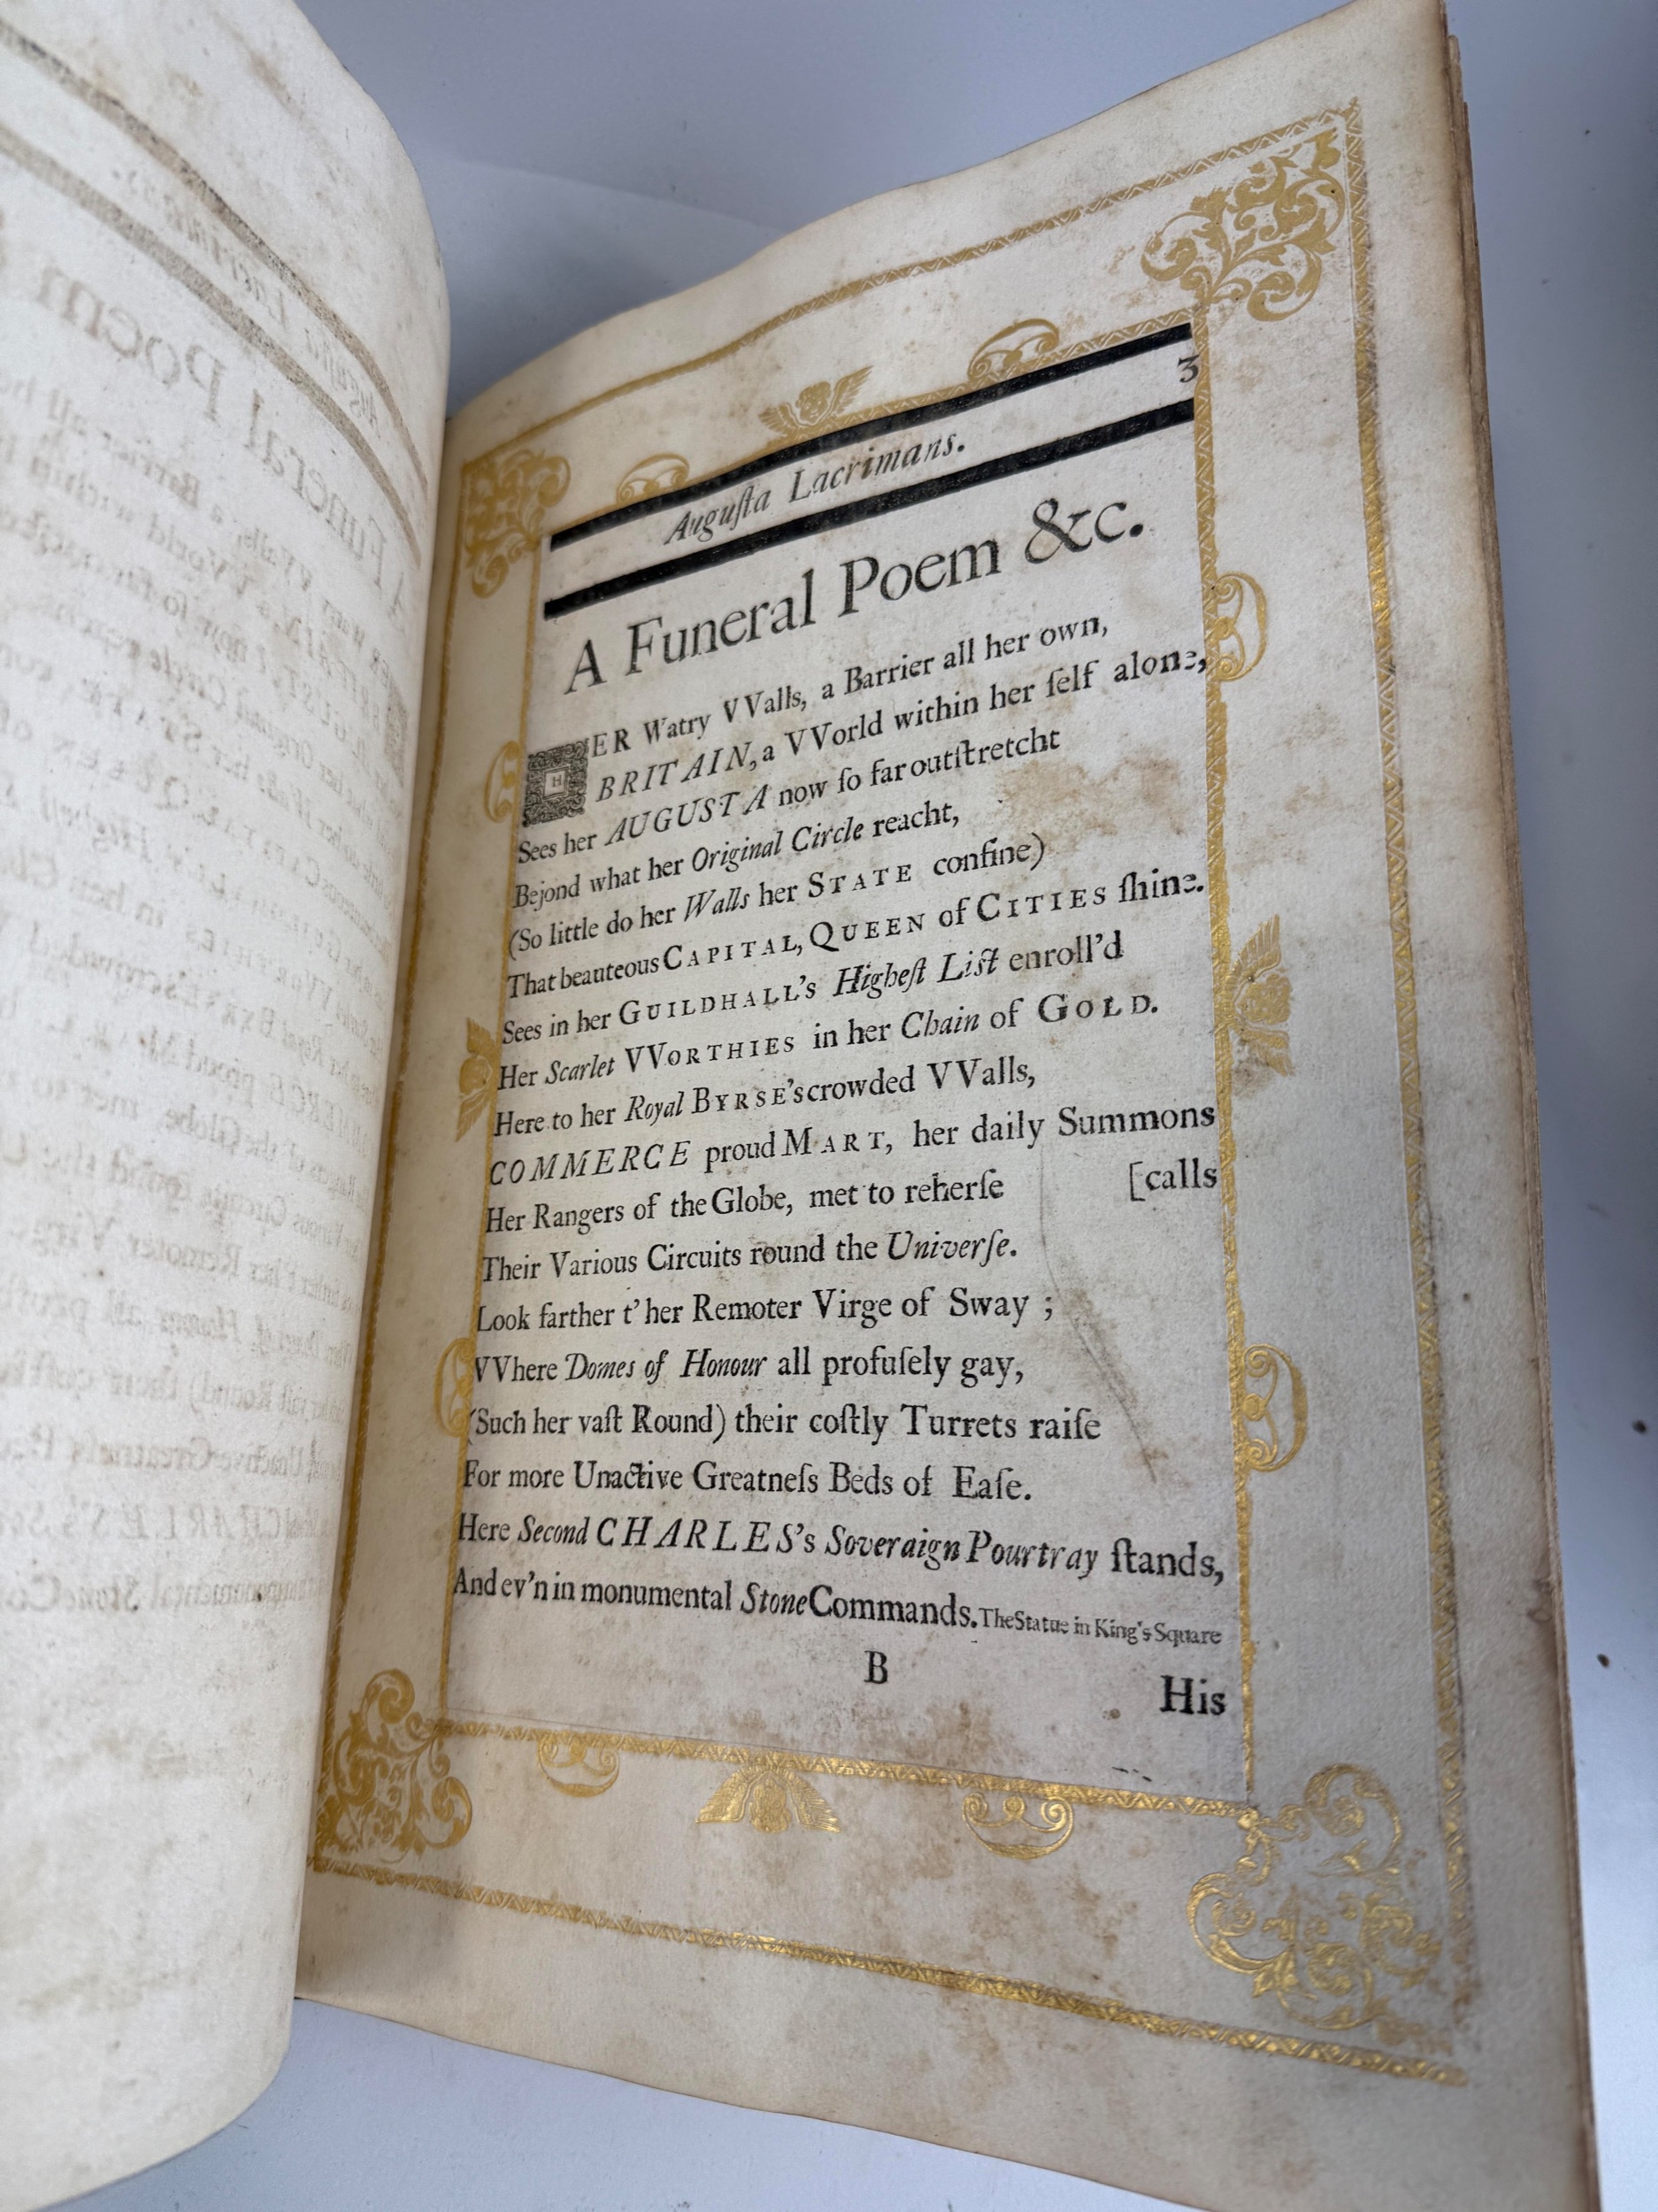 3
Auguſta Lacrimans.
A Funeral Poem &c.
HER Watry VValls, a Barrier all her own,
BRITAIN, a VVorld within her ſelf alone,
Sees her AUGUSTA now ſo far outſtretcht
Bejond what her Original Circle reacht,
(So little do her Walls her STATE confine)
That beauteous CAPITAL, QUEEN of CITIES ſhine.
Sees in her GUILDHALL's Higheſt Liſt enroll'd
Her Scarlet VVORTHIES in her Chain of GOLD.
Here to her Royal BYRSE's crowded VValls,
COMMERCE proud MART, her daily Summons
[calls
Her Rangers of the Globe, met to reherſe
Their Various Circuits round the Univerſe.
Look farther t' her Remoter Virge of Sway ;
VVhere Domes of Honour all profuſely gay,
(Such her vaſt Round) their coſtly Turrets raiſe
For more Unactive Greatneſs Beds of Eaſe.
Here Second CHARLES's Soveraign Pourtray ſtands,
And ev'n in monumental Stone Commands. The Statue in King's Square
B
His